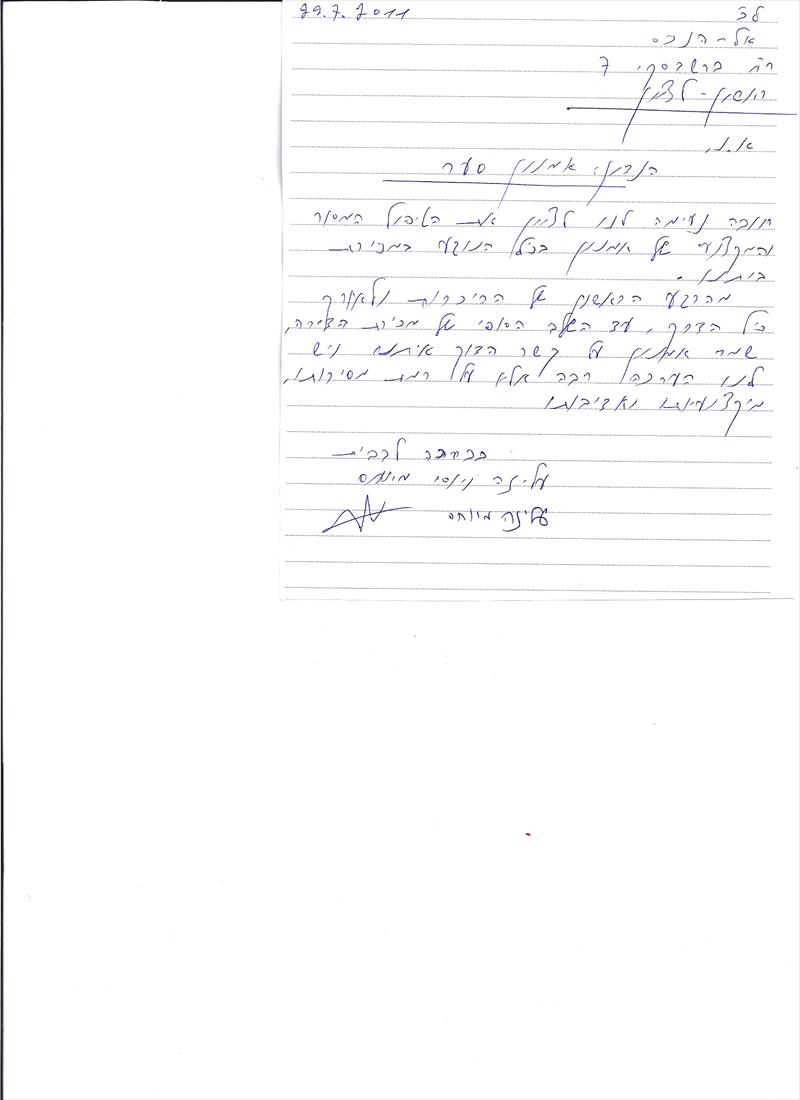 29.7.2011 לכ'
אל-הנכס
רח' ברשבסקי 7
ראשון-לציון
א.נ.
הנדון: אמנון סער
חובה נעימה לנו לציין את הטיפול המסור
והמקצועי של אמנון בכל הנוגע במכירת
ביתנו.
מהרגע הראשון של ההיכרות ולאורך
כל הדרך, עד השלב הסופי של מכירת הדירה,
שמר אמנון על קשר הדוק איתנו ויש
לנו הערכה רבה על רמת מסירותו,
מיקצועיותו ואדיבותו
בברכה לבבית
עליזה ויוסי מיוחס
עליזה מיוחס